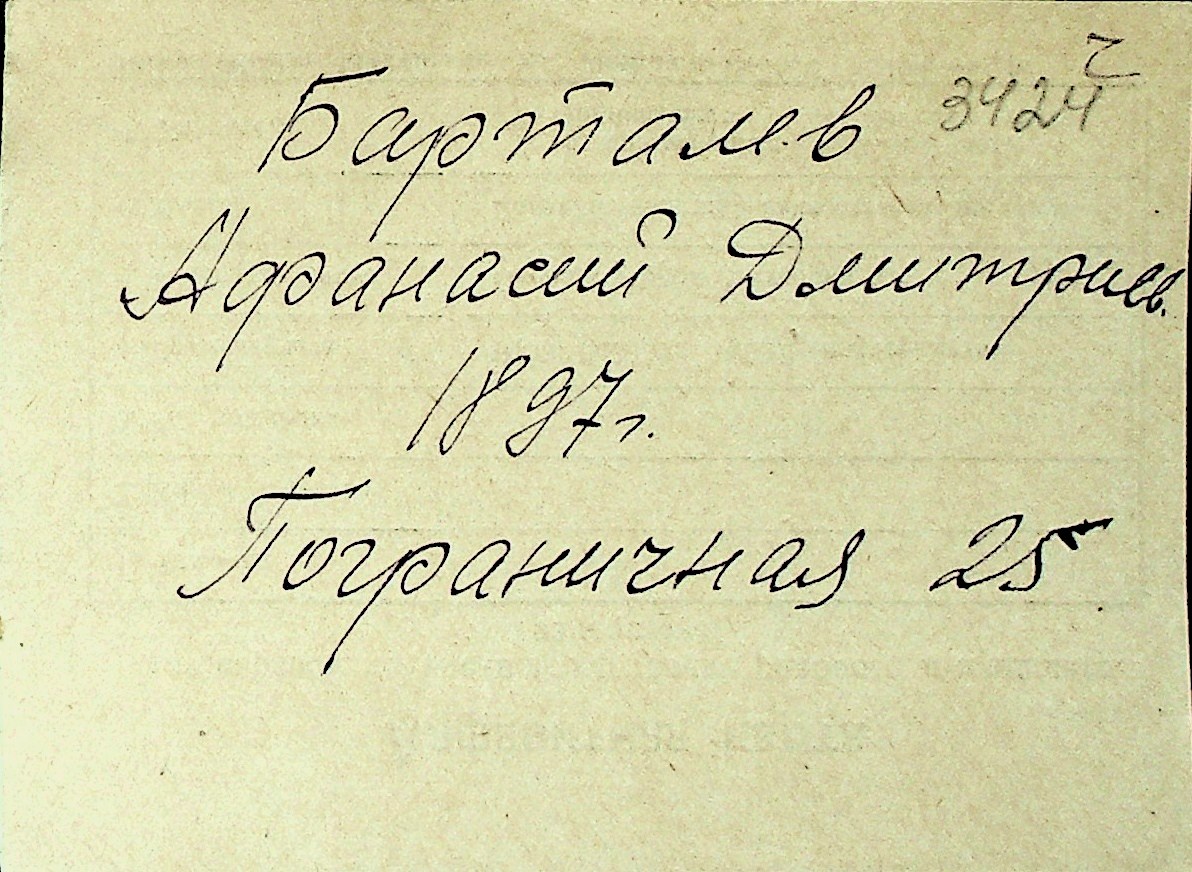 Барталев 3424
Афанасий Дмитриев.
1897г.
Пограничная 25